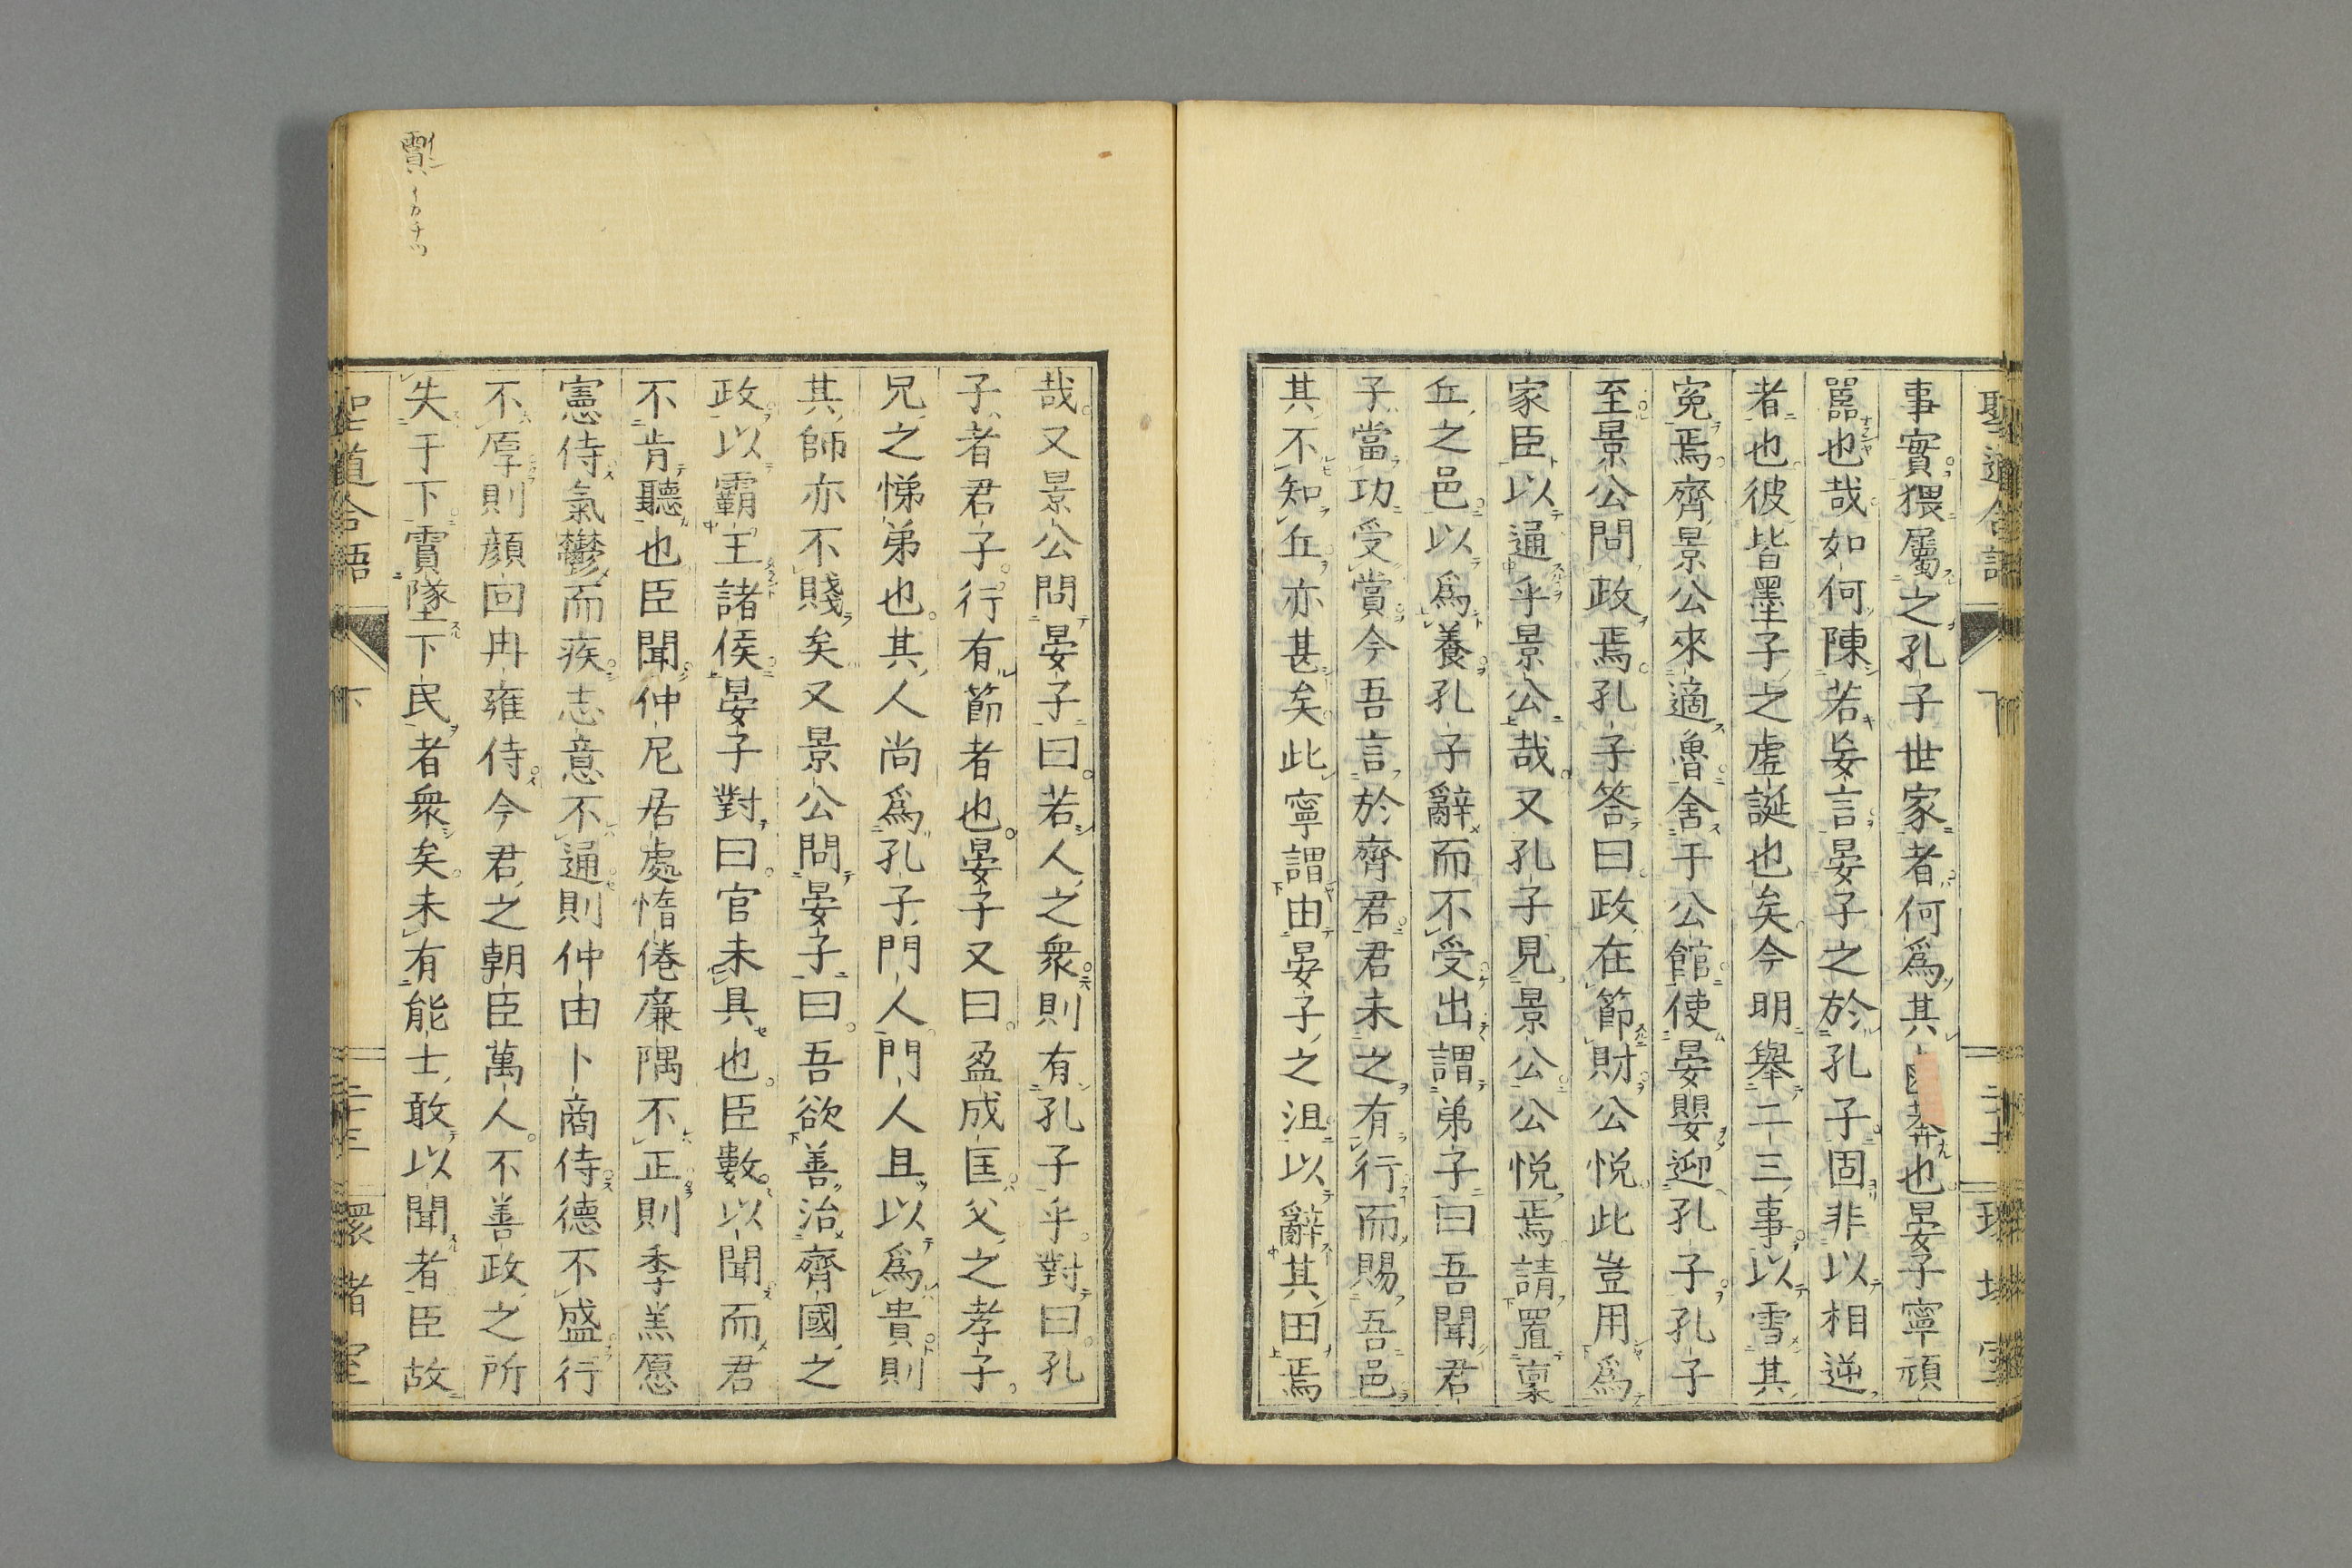 事實猥屬之孔子世家者何爲其鹵莽也晏子寧頑
嚚也哉如何陳若妄言晏子之於孔子固非以相逆
者也彼皆墨子之虛誕也矣今明舉二三事以雪其
寃焉齊景公來適魯舍于公館使晏嬰迎孔子孔子
至景公問政焉孔子答曰政在節財公悅此豈用爲
家臣以通乎景公哉又孔子見景公公悅焉請置廩
丘之邑以爲養孔子辭而不受出謂弟子曰吾聞君
子當功受賞今吾言於齊君君未之有行而賜吾邑
其不知丘亦甚矣此寧謂由晏子之沮以辭其田焉
哉又景公問晏子曰若人之衆則有孔子乎對曰孔
子者君子行有節者也晏子又曰盈成匡父之孝子
兄之悌弟也其人尚爲孔子門人門人且以爲貴則
其師亦不賤矣又景公問晏子曰吾欲善治齊國之
政以霸王諸侯晏子對曰官未具也臣數以聞而君
不肯聽也臣聞仲尼居處惰倦廉隅不正則季羔愿
憲侍氣鬱而疾志意不通則仲由卜商侍德不盛行
不厚則顏回冉雍侍今君之朝臣萬人不善政之所
失于下霣墜下民者衆矣未有能士敢以聞者臣故
聖道合語 下 二十三 環堵室
霣 イン イカヅチ